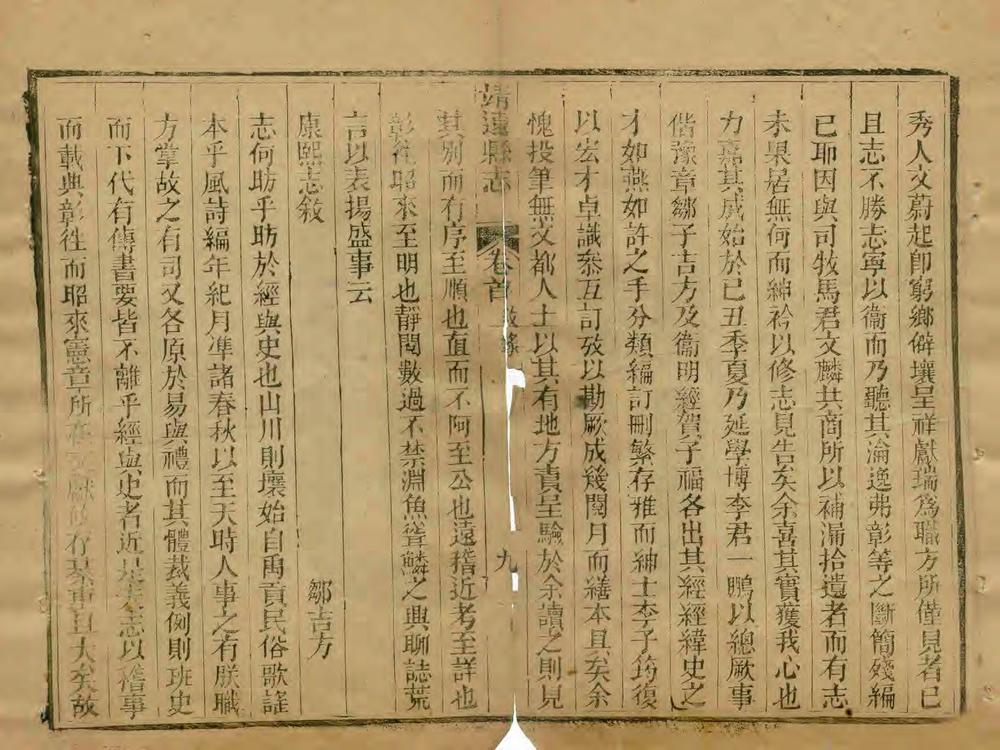 秀人文蔚起卽窮鄉僻壤呈祥獻瑞爲職方所僅見者已
且志不勝志寧以衞而乃聽其淪逸弗彰等之斷簡殘編
已耶因與司牧馬君文麟共商所以補漏拾遺者而有志
未果居無何而紳衿以修志見告矣余喜其實獲我心也
力嘉其成始於己丑季夏乃延學博李君一鵬以總厥事
偕豫章鄒子吉方及衞明經賀子福各出其經經緯史之
才如燕如許之手分類編訂刪繁存雅而紳士李子筠復
以宏才卓識叅互訂攷以勘厥成幾閱月而繕本具矣余
愧投筆無文都人士以其有地方責呈驗於余讀之則見
靖遠縣志 卷首 敘 九
其別而有序至順也直而不阿至公也遠稽近考至詳也
彰徃昭來至明也靜閱數過不禁淵魚聳鱗之興聊誌荒
言以表揚盛事云
康熙志敘 鄒吉方
志何昉乎昉於經與史也山川則壤始自禹貢民俗歌謠
本乎風詩編年紀月準諸春秋以至天時人事之有朕職
方掌故之有司又各原於易與禮而其體裁義例則班史
而下代有傳書要皆不離乎經與史者近是夫志以稽事
而載典彰徃而昭來憲章所在文獻攸存綦重且大矣故